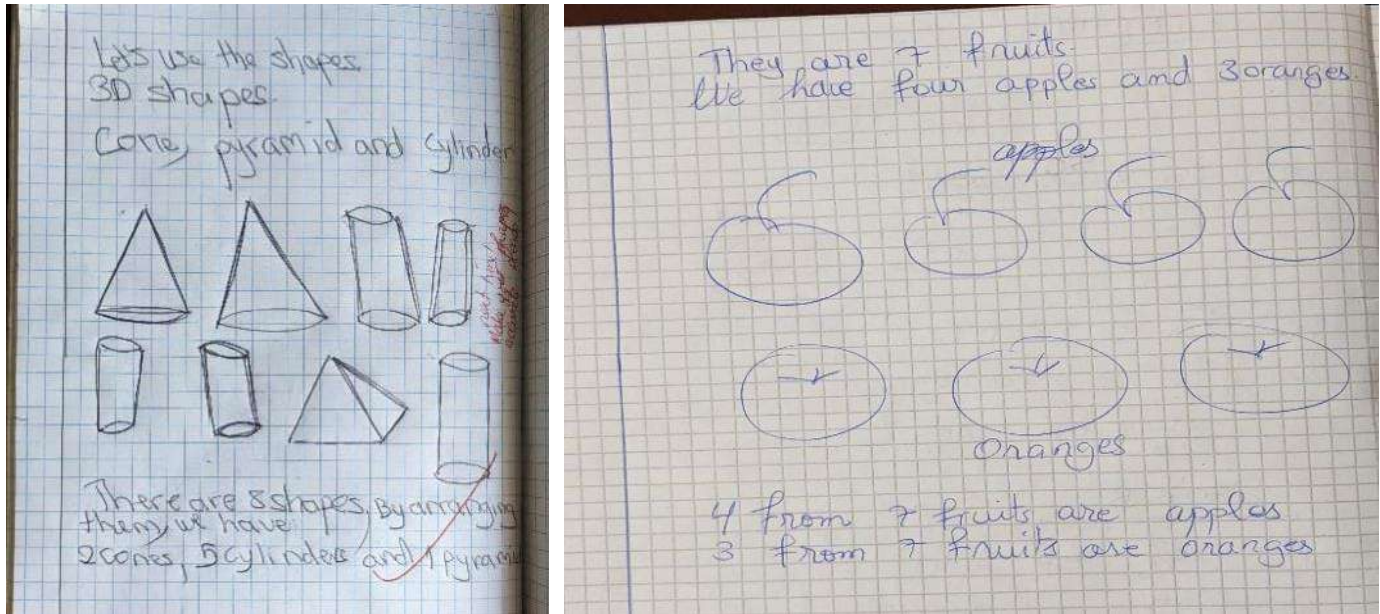 Let's use the shapes.
3D shapes.
Cone, pyramid and cylinder
There are 8 shapes, By arranging
them, we have
2 cones, 5 cylinders and 1 pyrami
They are 7 fruits.
We have four apples and 3 oranges.
apples
Oranges
4 from 7 fruits are apples
3 from 7 fruits are oranges